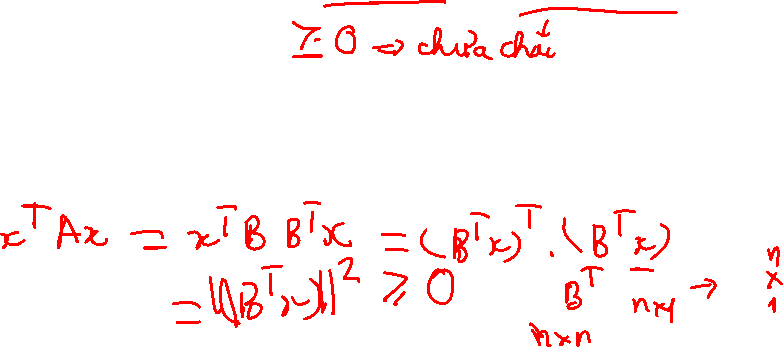 ≥ 0 => chưa chắc
xᵀAx = xᵀB Bᵀx = (Bᵀx)ᵀ.(Bᵀx)
= ||(Bᵀx)||² ≥ 0 Bᵀ n×1 → n×1
n×n